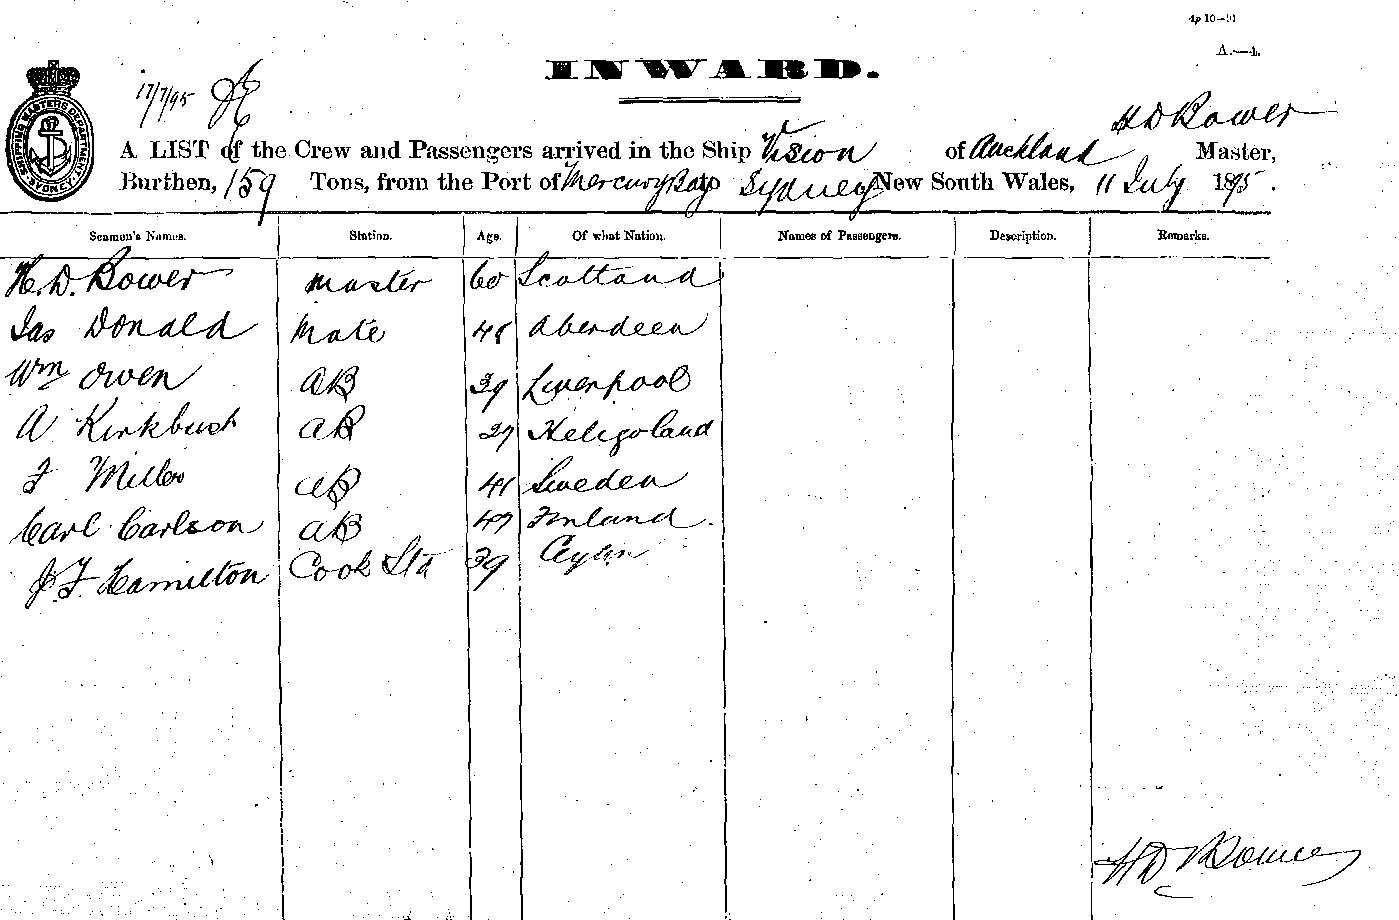 4p 10—91
A.—4.
INWARD.
17/7/95
H D Bower
A LIST of the Crew and Passengers arrived in the Ship Vision of Auckland Master,
Burthen, 159 Tons, from the Port of Mercury Bay to Sydney New South Wales, 11 July 1895.
SHIPPING MASTERS DEPARTMENT SYDNEY
Seamen's Names. Station. Age. Of what Nation. Names of Passengers. Description. Remarks.
H. D. Bower Master 60 Scotland
Jas Donald Mate 48 Aberdeen
Wm Owen AB 39 Liverpool
A Kirkbush AB 27 Heligoland
F Miller AB 41 Sweden
Carl Carlson AB 47 Finland
J. F Hamilton Cook Std 39 Ceylon
H D Bower